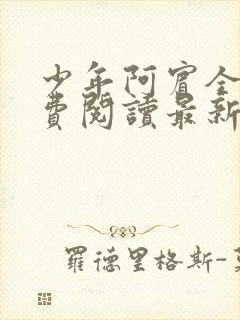 少年阿宾全
費閱讀最新
羅德里格斯-莫